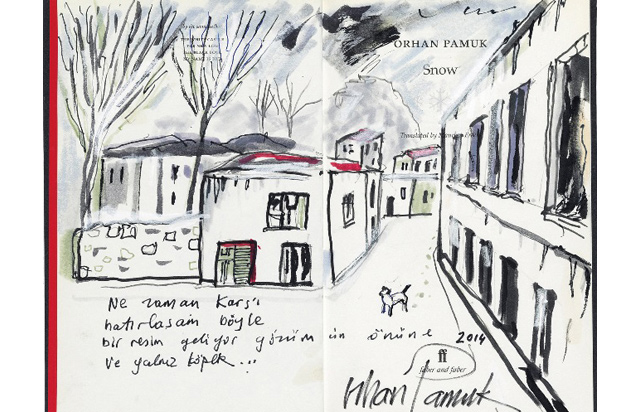 ORHAN PAMUK
Snow
Translated by
Ne zaman Kars'ı
hatırlasam böyle
bir resim geliyor gözümün önüne 2014
ve yalnız köpek...
ff
faber and faber
Orhan Pamuk